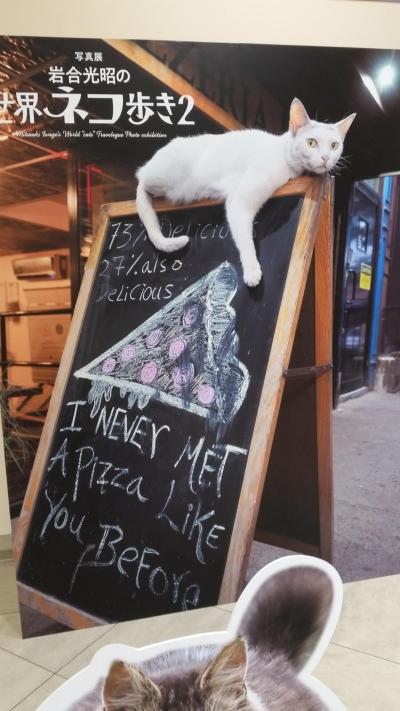 写真展
岩合光昭の
世界ネコ歩き2
Mitsuaki Iwago's World "cats" Travelogue Photo exhibition
73% Delicious
27% also
Delicious
I NEVER MET
A Pizza LIKE
You BeFore